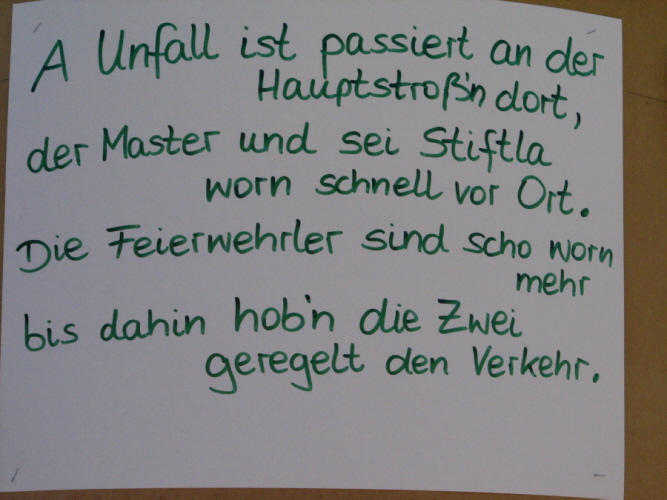 A Unfall ist passiert an der
Hauptstroß'n dort,
der Master und sei Stiftla
worn schnell vor Ort.
Die Feierwehrler sind scho worn
mehr
bis dahin hob'n die Zwei
geregelt den Verkehr.